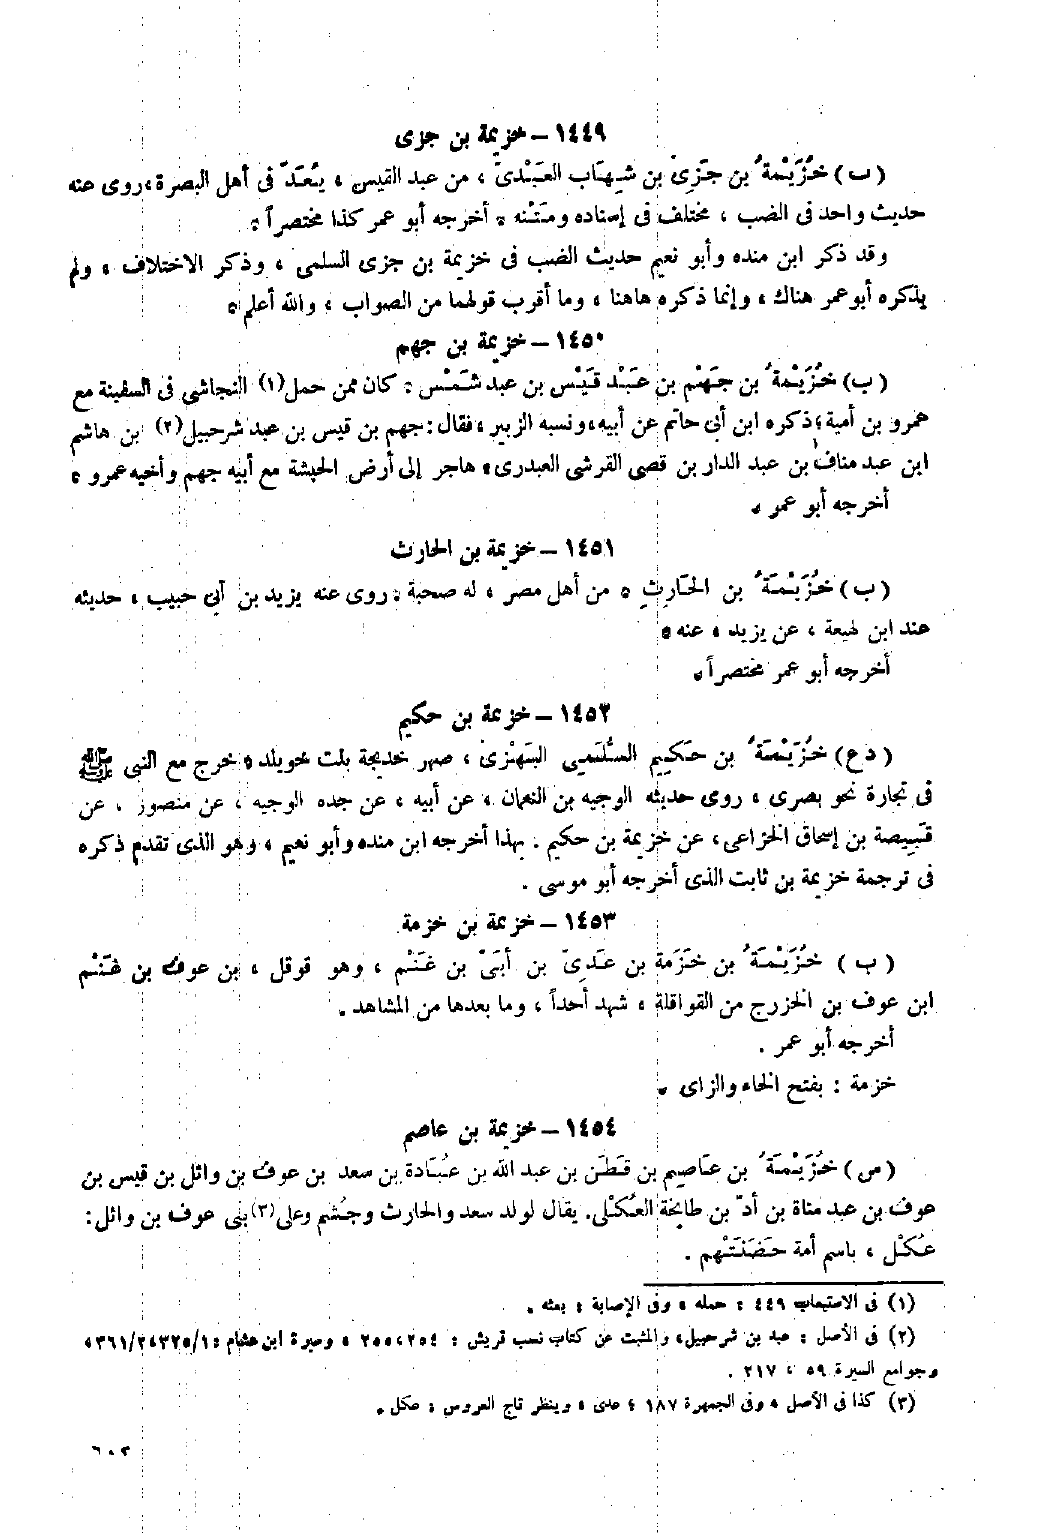 ١٤٤٩ – خزيمة بن جزى
( ب ) خُزَيْمة ُ بن جَزِىّ بن شِهاب العَبْدىّ ، من عبد القيس ، يُعَدّ فى أهل البصرة ، روى عنه
حديث واحد فى الضب ، مختلف فى إسناده ومَتْنه ، أخرجه أبو عمر كذا مختصراً .
وقد ذكر ابن منده وأبو نعيم حديث الضب فى خزيمة بن جزى السلمى ، وذكر الاختلاف ، ولم
يذكره أبو عمر هناك ، وإنما ذكره هاهنا ، وما أقرب قولهما من الصواب ، والله أعلم .
١٤٥٠ – خزيمة بن جهم
( ب ) خُزَيْمة ُ بن جَهْم بن عَبْد قَيْس بن عبد شَمْس : كان ممن حمل (١) النجاشى فى السفينة مع
عمرو بن أمية ، ذكره ابن أبى حاتم عن أبيه ، ونسبه الزبير ، فقال : جهم بن قيس بن عبد شرحبيل (٢) بن هاشم
ابن عبد مناف بن عبد الدار بن قصى القرشى العبدرى ، هاجر إلى أرض الحبشة مع أبيه جهم وأخيه عمرو .
أخرجه أبو عمر .
١٤٥١ – خزيمة بن الحارث
( ب ) خُزَيْمَة ُ بن الحَارِثِ . من أهل مصر ، له صحبة : روى عنه يزيد بن أبى حبيب ، حديثه
عند ابن لهيعة ، عن يزيد ، عنه .
أخرجه أبو عمر مختصراً .
١٤٥٢ – خزيمة بن حكيم
( د ع ) خُزَيْمَة ُ بن حَكِيم السُّلَمى البَهْزىّ ، صهر خديجة بنت خويلد ، خرج مع النبى ﷺ
فى تجارة نحو بصرى ، روى حديثه الوجيه بن النعمان ، عن أبيه ، عن جده الوجيه ، عن منصور ، عن
قَبِيصة بن إسحاق الخزاعى ، عن خزيمة بن حكيم . بهذا أخرجه ابن منده وأبو نعيم ، وهو الذى تقدم ذكره
فى ترجمة خزيمة بن ثابت الذى أخرجه أبو موسى .
١٤٥٣ – خزيمة بن خزمة
( ب ) خُزَيْمَة ُ بن خَزَمة بن عَدِىّ بن أبَىّ بن غَنْم ، وهو قوقل ، بن عوف بن غَنْم
ابن عوف بن الخزرج من القواقلة ، شهد أحداً ، وما بعدها من المشاهد .
أخرجه أبو عمر .
خزمة : بفتح الخاء والزاى .
١٤٥٤ – خزيمة بن عاصم
( س ) خُزَيْمَة ُ بن عَاصِم بن قَطَن بن عبد الله بن عُبَادة بن سعد بن عوف بن وائل بن قيس بن
عوف بن عبد مناة بن أدّ بن طابخة العُكْلى . يقال لولد سعد والحارث وجُشم وعلى (٣) بنى عوف بن وائل :
عُكْل ، باسم أمة حَضَنَتْهم .
(١) فى الاستيعاب ٤٤٩ : حمله ، وفى الإصابة : بعثه .
(٢) فى الأصل : عبد بن شرحبيل ، والمثبت عن كتاب نسب قريش : ٢٥٤ ، ٢٥٥ ، وسيرة ابن هشام : ١/٣٢٥ ، ٢/٣٦١ ،
وجوامع السيرة ٥٩ ، ٢١٧ .
(٣) كذا فى الأصل ، وفى الجمهرة ١٨٧ : عدى ، وينظر تاج العروس : عكل .
٦٠٣